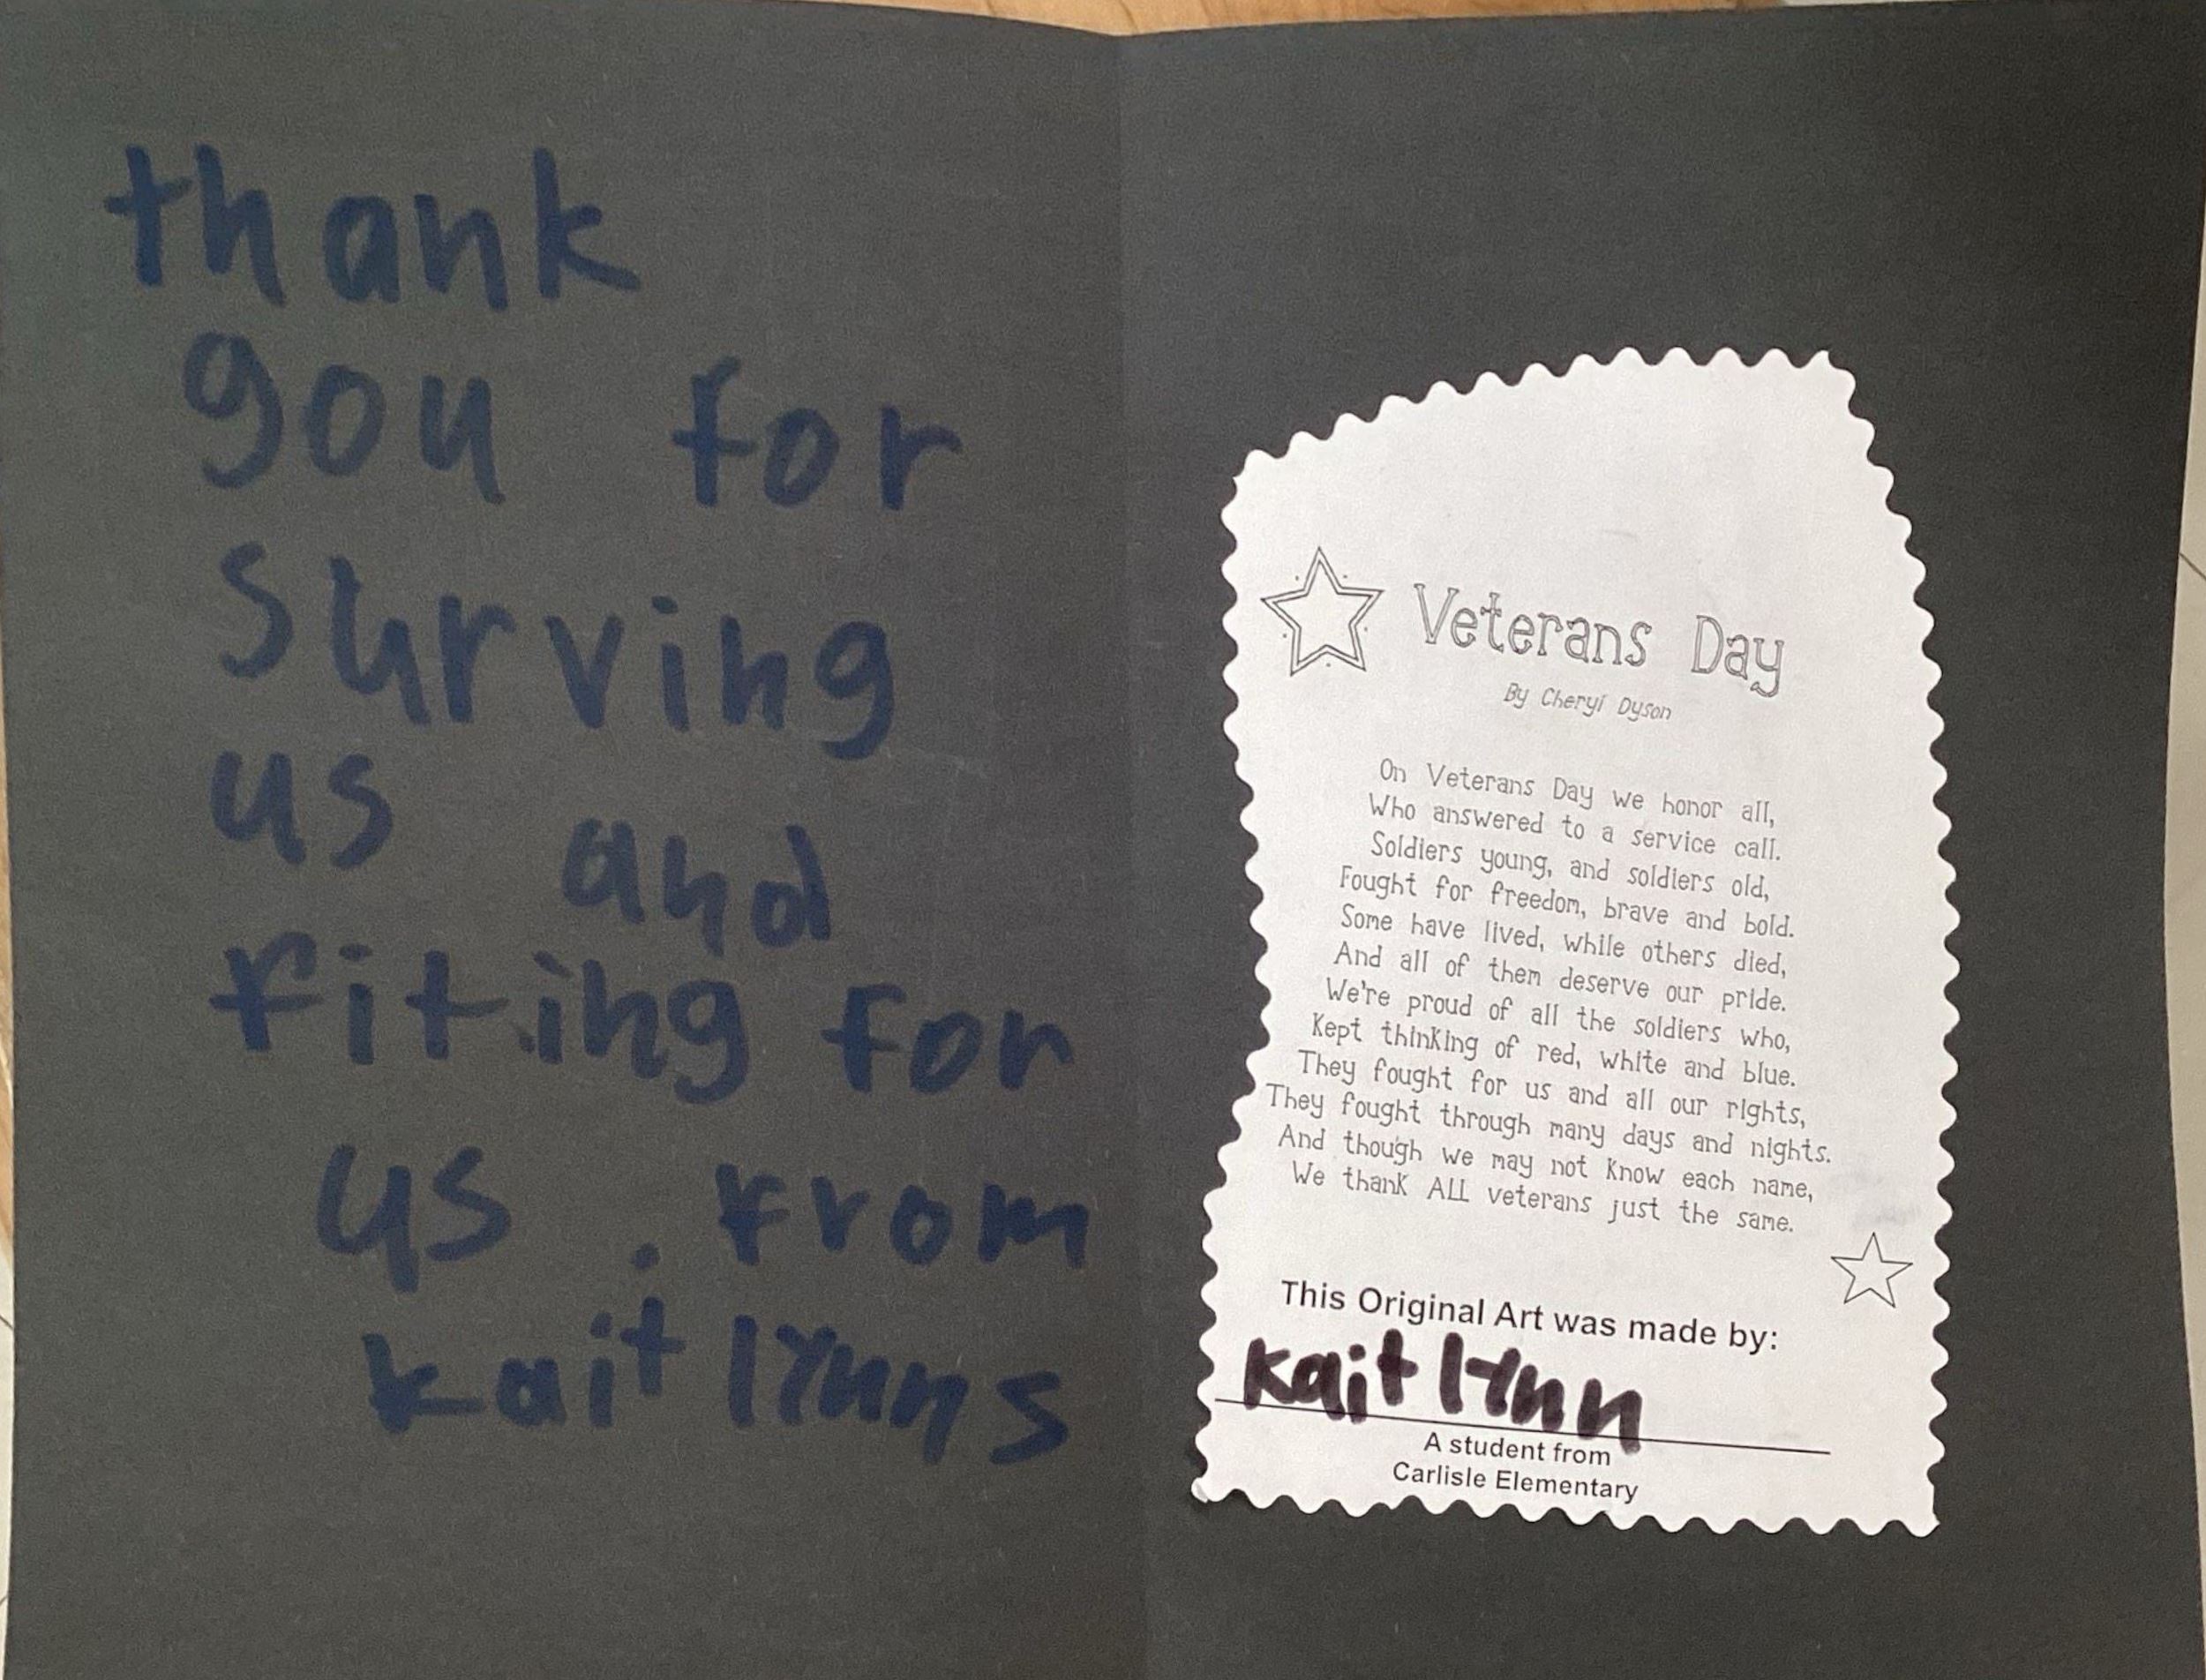 thank
you for
surving
us and
fiting for
us. from
kaitlynns
Veterans Day
By Cheryl Dyson
On Veterans Day we honor all,
Who answered to a service call.
Soldiers young, and soldiers old,
Fought for freedom, brave and bold.
Some have lived, while others died,
And all of them deserve our pride.
We're proud of all the soldiers who,
Kept thinking of red, white and blue.
They fought for us and all our rights,
They fought through many days and nights.
And though we may not know each name,
We thank ALL veterans just the same.
This Original Art was made by:
kaitlynn
A student from
Carlisle Elementary